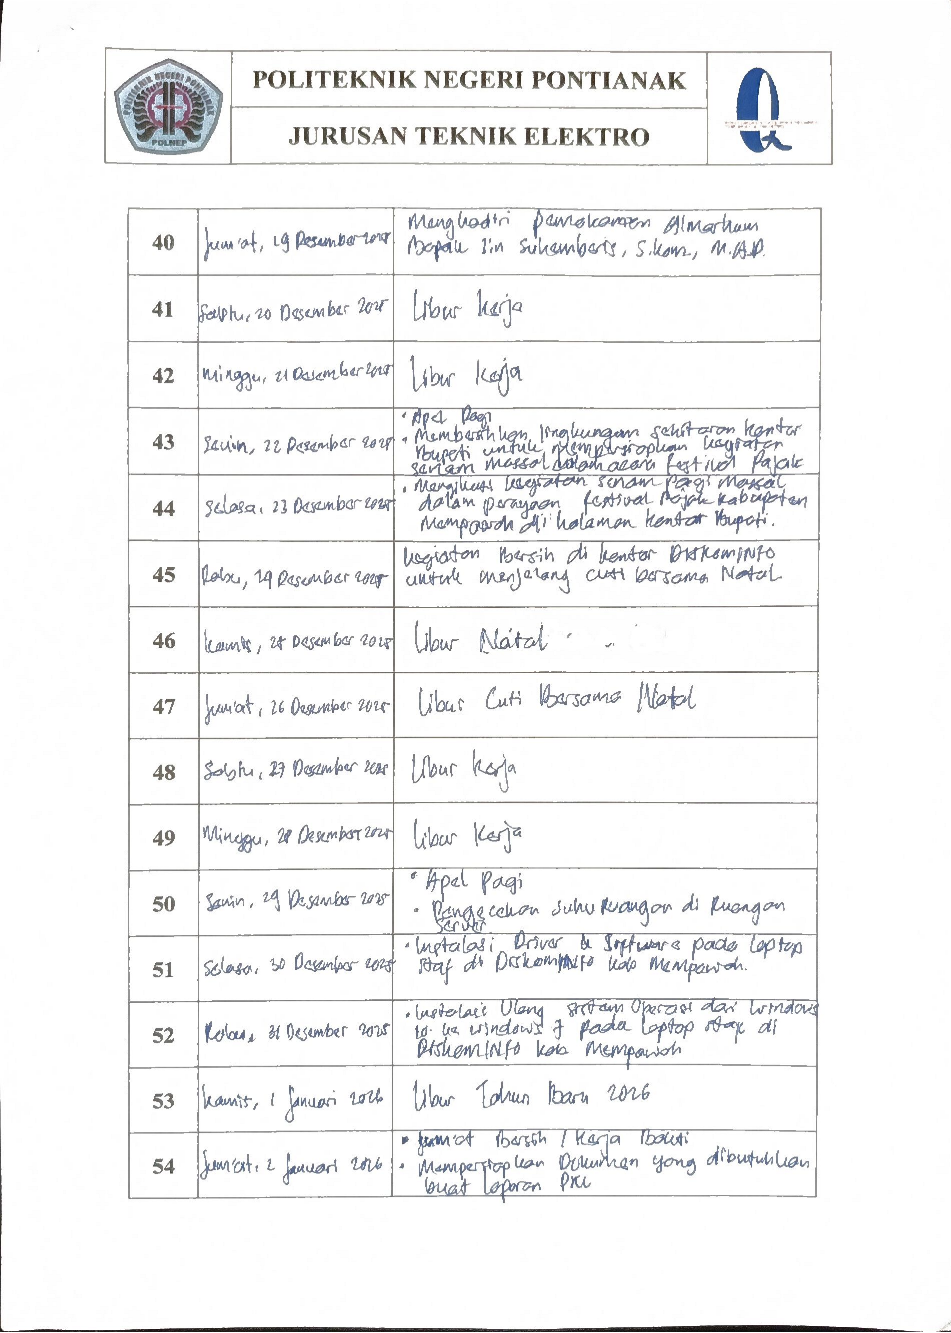 POLITEKNIK NEGERI PONTIANAK
JURUSAN TEKNIK ELEKTRO
POLITEKNIK NEGERI PONTIANAK
POLNEP
40 Jum'at, 19 Desember 2025 Menghadiri Pemakaman Almarhum
Bapak Iin Suhemberis, S.kom., M.A.P.
41 Sabtu, 20 Desember 2025 Libur Kerja
42 Minggu, 21 Desember 2025 Libur Kerja
43 Senin, 22 Desember 2025 • Apel Pagi
• Membersihkan lingkungan sekitaran kantor
Bupati untuk mempersiapkan kegiatan
senam massal dalam acara Festival Pajak
44 Selasa, 23 Desember 2025 • Mengikuti kegiatan senam Pagi Massal
dalam perayaan Festival Pajak Kabupaten
Mempawah di halaman kantor Bupati.
45 Rabu, 24 Desember 2025 kegiatan Bersih di kantor DISKOMINFO
untuk menjelang cuti bersama Natal
46 Kamis, 25 Desember 2025 Libur Natal
47 Jum'at, 26 Desember 2025 Libur Cuti Bersama Natal
48 Sabtu, 27 Desember 2025 Libur Kerja
49 Minggu, 28 Desember 2025 Libur Kerja
50 Senin, 29 Desember 2025 • Apel Pagi
• Pengecekan Suhu Ruangan di Ruangan
Server
51 Selasa, 30 Desember 2025 • Instalasi Driver & Software pada laptop
staf di DISKOMINFO kab Mempawah.
52 Rabu, 31 Desember 2025 • Instalasi Ulang sistem Operasi dari windows
10 ke windows 7 pada laptop staf di
DISKOMINFO kab Mempawah
53 Kamis, 1 Januari 2026 Libur Tahun Baru 2026
54 Jum'at, 2 Januari 2026 • Jum'at Bersih / Kerja Bakti
• Mempersiapkan Dokumen yang dibutuhkan
buat laporan PKL